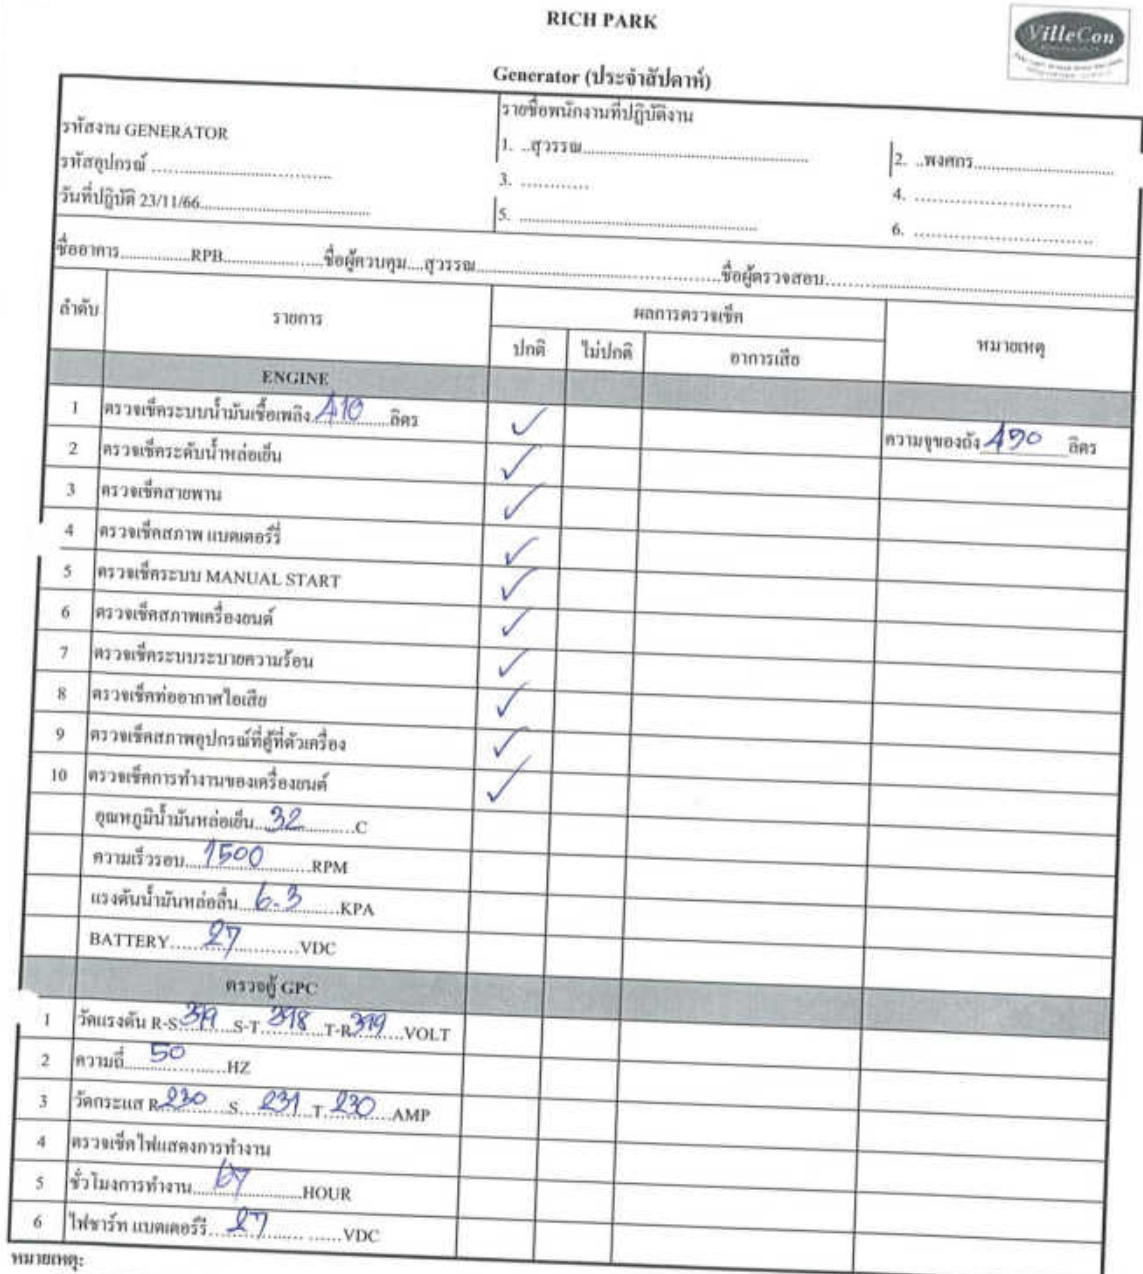 RICH PARK
VilleCon
Generator (ประจำสัปดาห์)
รหัสงาน GENERATOR
รหัสอุปกรณ์ ................................
วันที่ปฏิบัติ 23/11/66................................
รายชื่อพนักงานที่ปฏิบัติงาน
1. ..สุวรรณ................................
2. ..พงศกร................................
3. ............
4. ............................
5. ................................
6. ............................
ชื่ออาคาร................RPB......................ชื่อผู้ควบคุม....สุวรรณ................................ชื่อผู้ตรวจสอบ................................
ลำดับ รายการ ผลการตรวจเช็ค หมายเหตุ
ปกติ ไม่ปกติ อาการเสีย
ENGINE
1 ตรวจเช็คระบบน้ำมันเชื้อเพลิง 410 ลิตร ✓ ความจุของถัง 490 ลิตร
2 ตรวจเช็คระดับน้ำหล่อเย็น ✓
3 ตรวจเช็คสายพาน ✓
4 ตรวจเช็คสภาพ แบตเตอร์รี่ ✓
5 ตรวจเช็คระบบ MANUAL START ✓
6 ตรวจเช็คสภาพเครื่องยนต์ ✓
7 ตรวจเช็คระบบระบายความร้อน ✓
8 ตรวจเช็คท่ออากาศไอเสีย ✓
9 ตรวจเช็คสภาพอุปกรณ์ที่ตู้ที่ตัวเครื่อง ✓
10 ตรวจเช็คการทำงานของเครื่องยนต์ ✓
อุณหภูมิน้ำมันหล่อเย็น...32............C
ความเร็วรอบ...1500............RPM
แรงดันน้ำมันหล่อลื่น...6.3............KPA
BATTERY......27............VDC
ตรวจตู้ GPC
1 วัดแรงดัน R-S 399 S-T 398 T-R 399 VOLT
2 ความถี่....50............HZ
3 วัดกระแส R 230 S 231 T 230 AMP
4 ตรวจเช็คไฟแสดงการทำงาน
5 ชั่วโมงการทำงาน....67............HOUR
6 ไฟชาร์ท แบตเตอร์รี....27............VDC
หมายเหตุ: